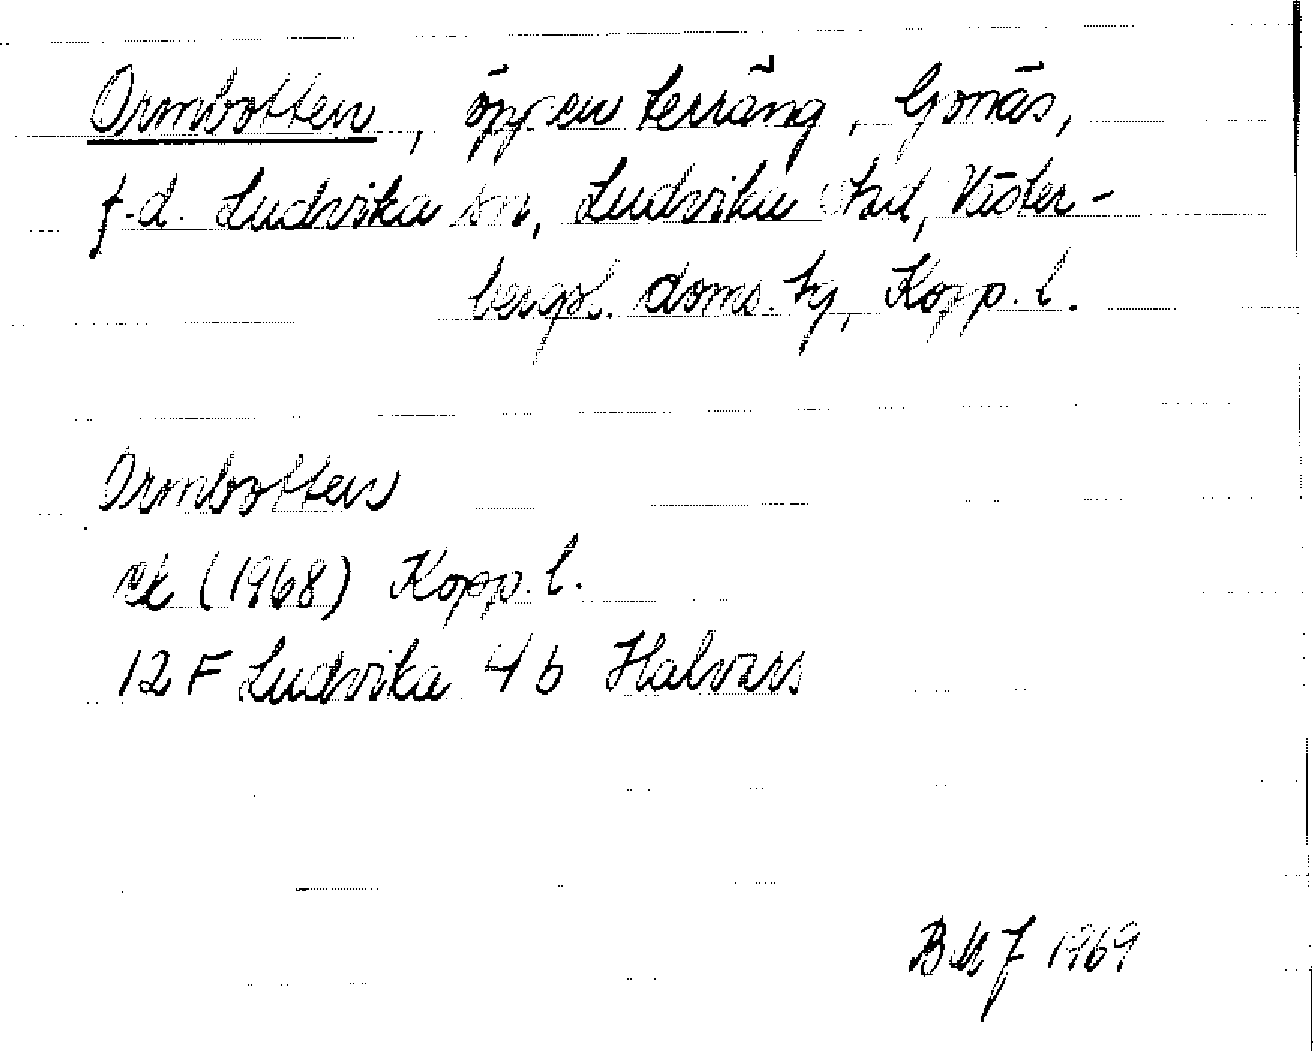 Ormbotten, öppen terräng, Gonäs,
f.d. Ludvika sn, Ludvika stad, Väster-
bergsl. doms. tg, Kopp. l.
Ormbotten
rek (1968) Kopp. l.
12 F Ludvika 4 b Halvars
BMJ 1969